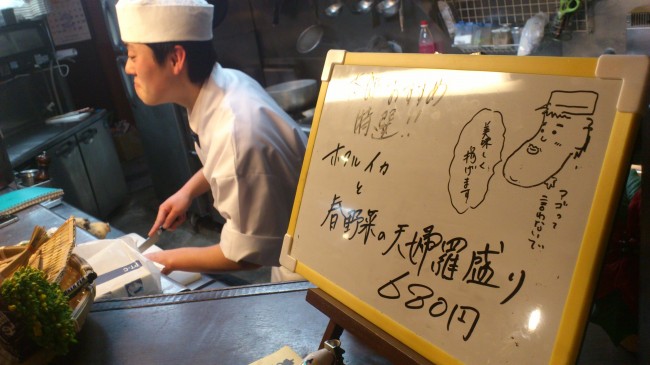 おすすめ
特選!!
ホタルイカ
と
春野菜の天婦羅盛り
680円
美味しく
揚げます
アゴって
言わないで